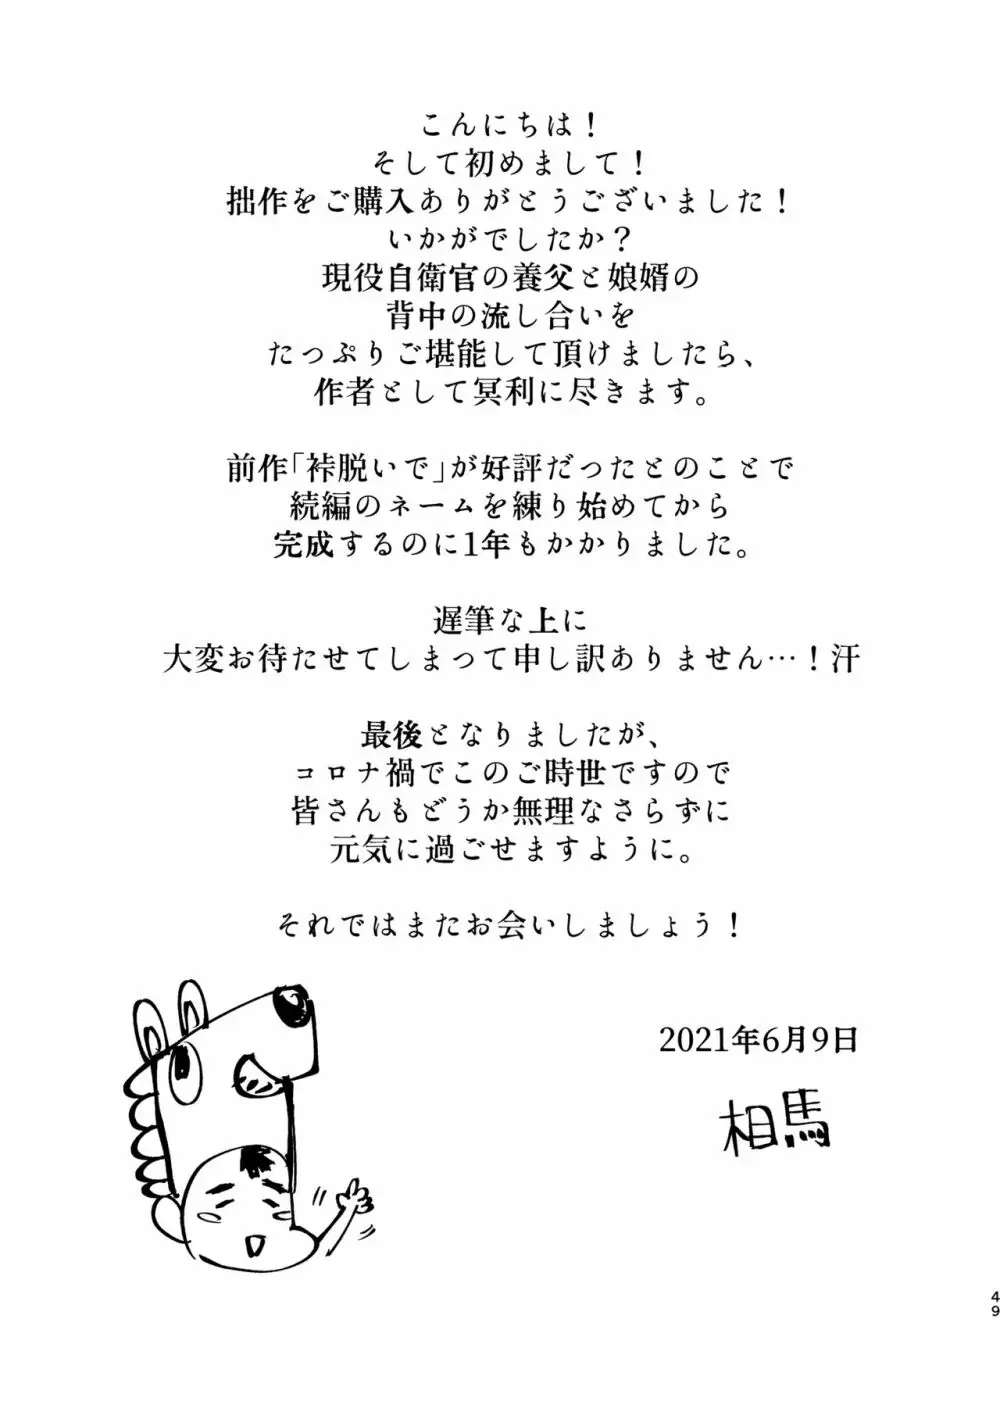 こんにちは！
そして初めまして！
拙作をご購入ありがとうございました！
いかがでしたか？
現役自衛官の養父と娘婿の
背中の流し合いを
たっぷりご堪能して頂けましたら、
作者として冥利に尽きます。
前作「裃脱いで」が好評だったとのことで
続編のネームを練り始めてから
完成するのに1年もかかりました。
遅筆な上に
大変お待たせてしまって申し訳ありません…！汗
最後となりましたが、
コロナ禍でこのご時世ですので
皆さんもどうか無理なさらずに
元気に過ごせますように。
それではまたお会いしましょう！
2021年6月9日
相馬
49